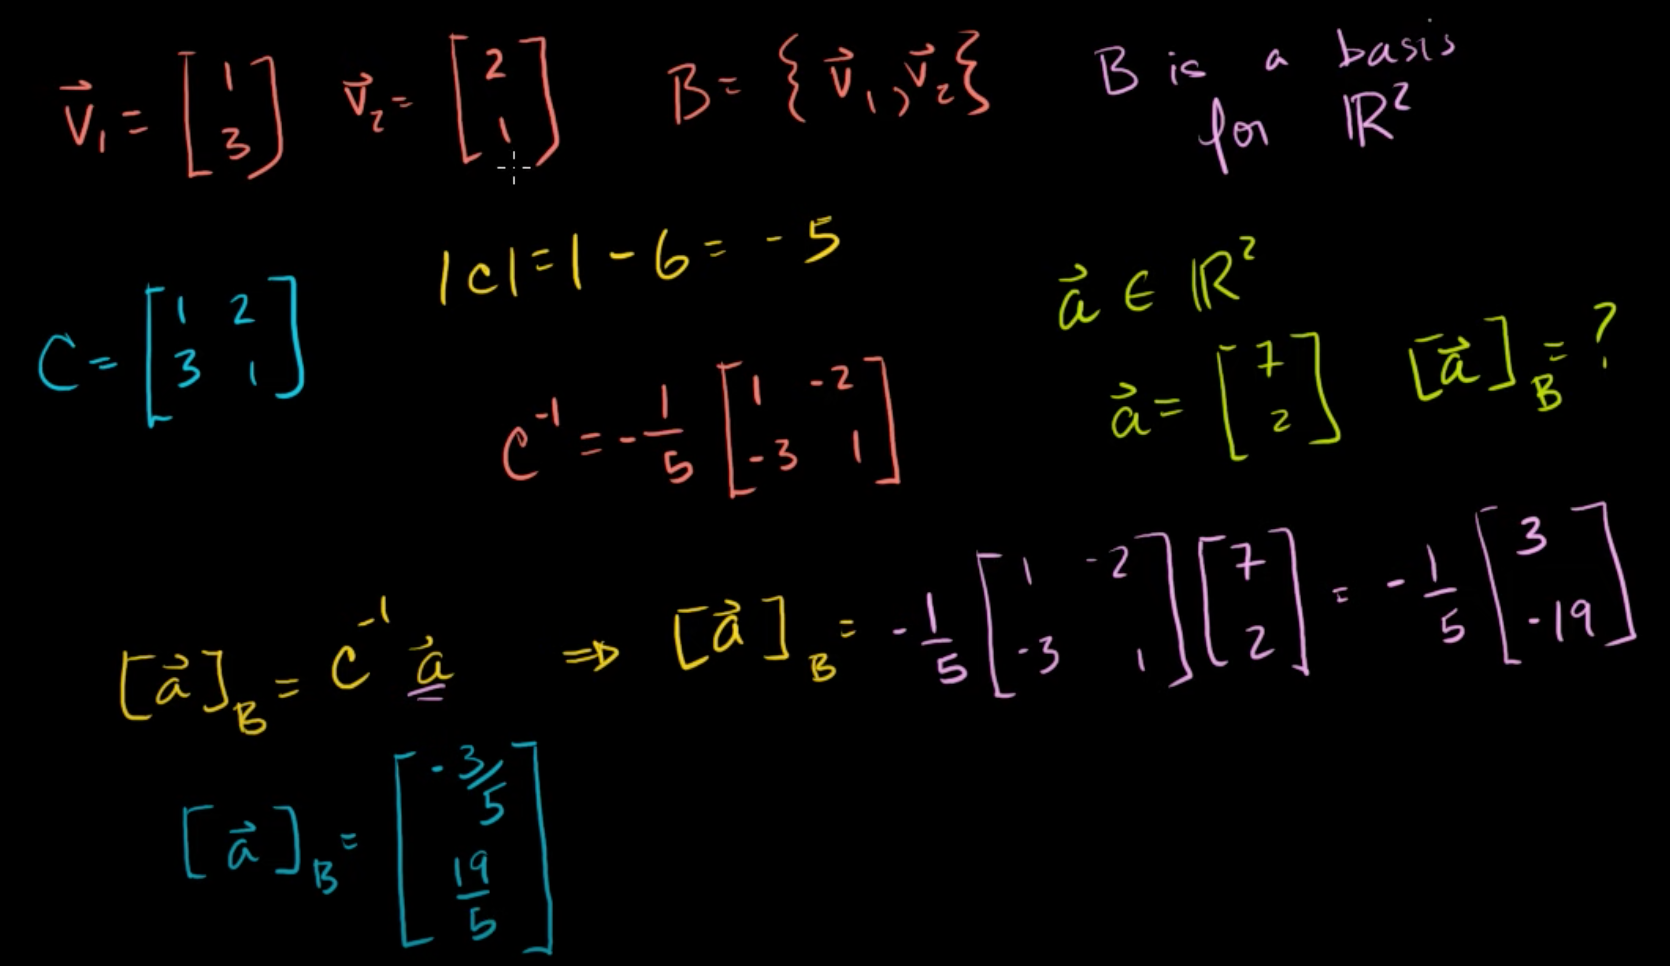 v⃗₁ = [1; 3] v⃗₂ = [2; 1] B = {v⃗₁, v⃗₂} B is a basis
for ℝ²
|C| = 1 - 6 = -5
C = [1 2; 3 1]
a⃗ ∈ ℝ²
a⃗ = [7; 2] [a⃗]_B = ?
C⁻¹ = -1/5 [1 -2; -3 1]
[a⃗]_B = C⁻¹ a⃗ ⇒ [a⃗]_B = -1/5 [1 -2; -3 1] [7; 2] = -1/5 [3; -19]
[a⃗]_B = [-3/5; 19/5]